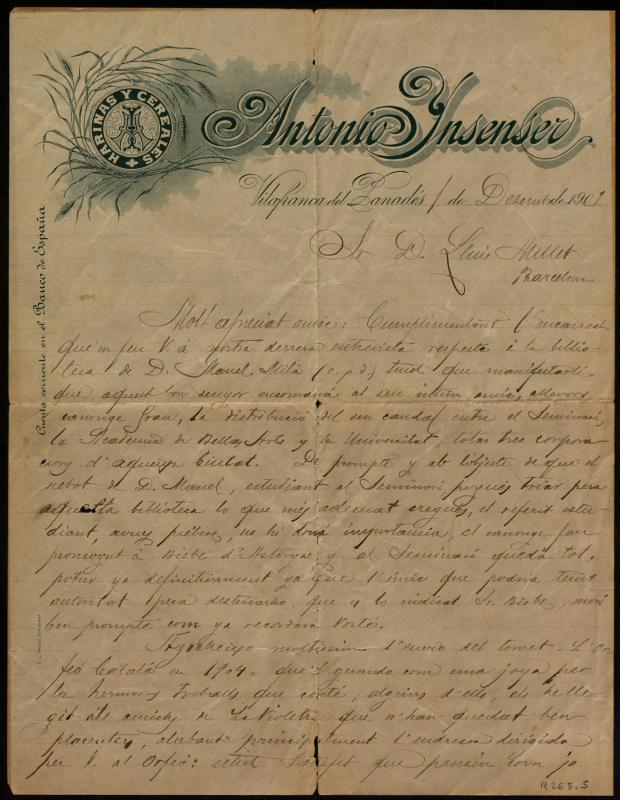 HARINAS Y CEREALES
Antonio Ynsenser
Vilafranca del Panadés 1 de Dezembre de 190
Sr. D. Lluis Millet
Barcelona
Cuenta corriente en el Banco de España
Molt apreciat amic: Cumplimentant l'encarrech
que'm feu V. á nostra derrera entrevista respecte á la biblio-
teca de D. Manel Milá (e.p.d.) tinch que manifestarli
que aquest bon senyor encomaná al seu íntim amic, allavors
canonge Grau, la distribució del seu caudal entre el Seminari,
la Academia de Bellas Arts y la Universitat, totas tres corpora-
cions d'aqueixa Ciutat. De prompte y ab l'objecte de que el
nebot de D. Manel, estudiant al Seminari pogués triar pera
aquella biblioteca lo que més adecuat cregués, el referit estu-
diant, avuy prébere, no hi doná importancia, el canonge fou
promogut á Bisbe d'Astorga y al Seminari quedá tot,
potser ya definitivament ya que l'únic que podria tenir
autoritat pera destinarho, que es lo indicat Sr. Bisbe, morí
ben prompte com ya recordará Vosté.
Agraheixo moltissim l'envio del tomet - L'Or-
feó Catalá en 1904 - que guardo com una joya per
los hermosos treballs que conté; alguns d'ells, els he lle-
git als amichs de La Violeta que n'han quedat ben
placenters, alabant principalment l'endressa dirigida
per V. al Orfeó: que pensin com jo
R 268.5